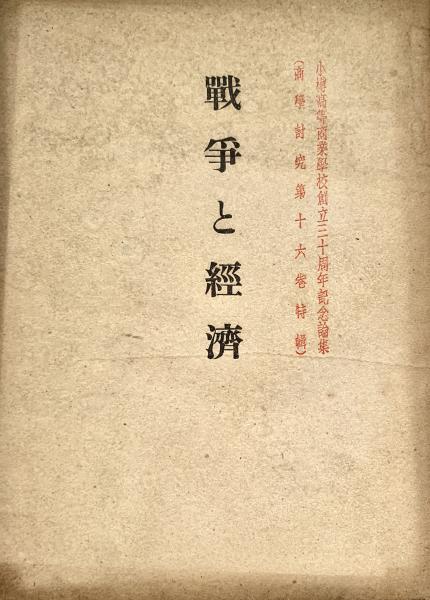 小樽高等商業學校創立三十周年記念論集
（商學討究第十六卷特輯）
戰爭と經濟